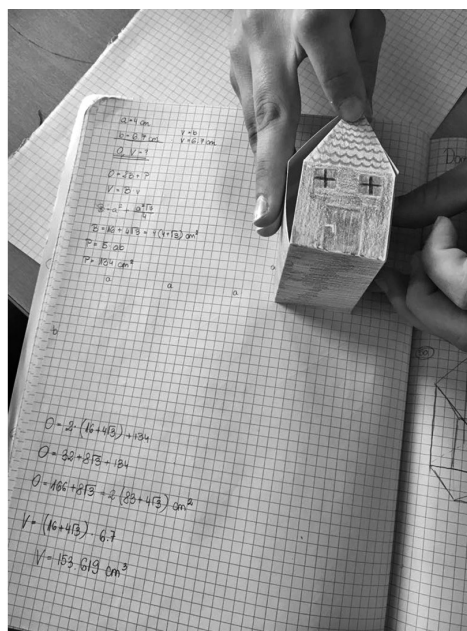 a = 4 cm
b = 6.7 cm
v = b
v = 6.7 cm
O, V = ?
O = 2B + P
V = B · v
B = a² + a²√3/4
B = 16 + 4√3 = 4(4+√3) cm²
P = 5 · ab
P = 134 cm²
a
a
a
a
b
O = 2 · (16+4√3) + 134
O = 32 + 8√3 + 134
O = 166 + 8√3 = 2 (83+4√3) cm²
V = (16+4√3) · 6.7
V = 153.619 cm³